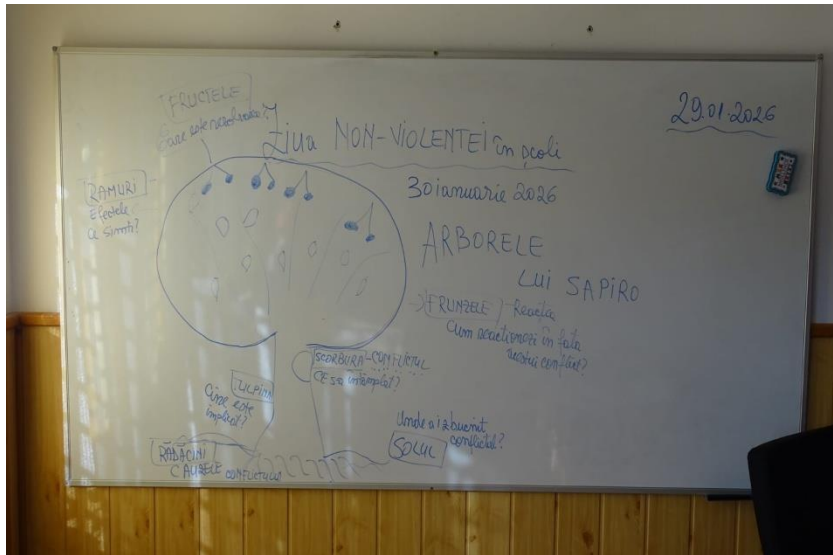 29.01.2026
FRUCTELE
Care este rezolvarea?
Ziua NON-VIOLENTEI în școli
30 ianuarie 2026
RAMURI
Efectele
ai simtit?
ARBORELE
LUI SAPIRO
FRUNZELE - Reacția
Cum reactionezi în fata
acestui conflict?
SCORBURA - CONFLICTUL
CE s-a întâmplat?
TULPINA
Cine este
implicat?
Unde a izbucnit
conflictul?
SOLUL
RĂDĂCINI
CAUZELE CONFLICTULUI